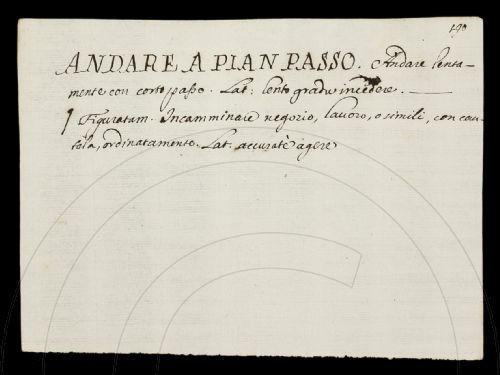 190
ANDARE A PIAN PASSO. Andare lenta-
mente con corto passo. Lat. lento gradu incedere.
¶ Figuratam. Incamminare negozio, lavoro, o simili, con cau-
tela, ordinatamente. Lat. accuratè agere